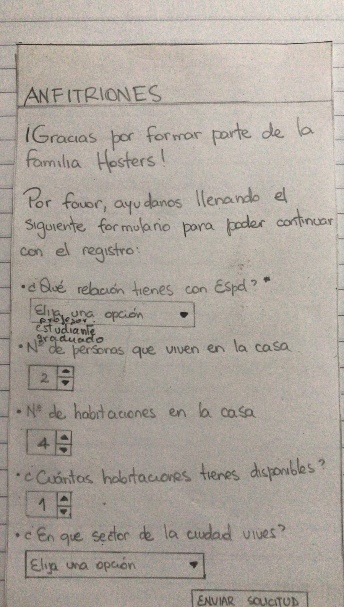 ANFITRIONES
¡Gracias por formar parte de la
familia Hosters!
Por favor, ayudanos llenando el
siguiente formulario para poder continuar
con el registro:
• ¿Qué relación tienes con Espol? *
Elija una opción
profesor
estudiante
graduado
• N° de personas que viven en la casa
2
• N° de habitaciones en la casa
4
• ¿Cuántas habitaciones tienes disponibles?
1
• ¿En que sector de la ciudad vives?
Elija una opción
ENVIAR SOLICITUD